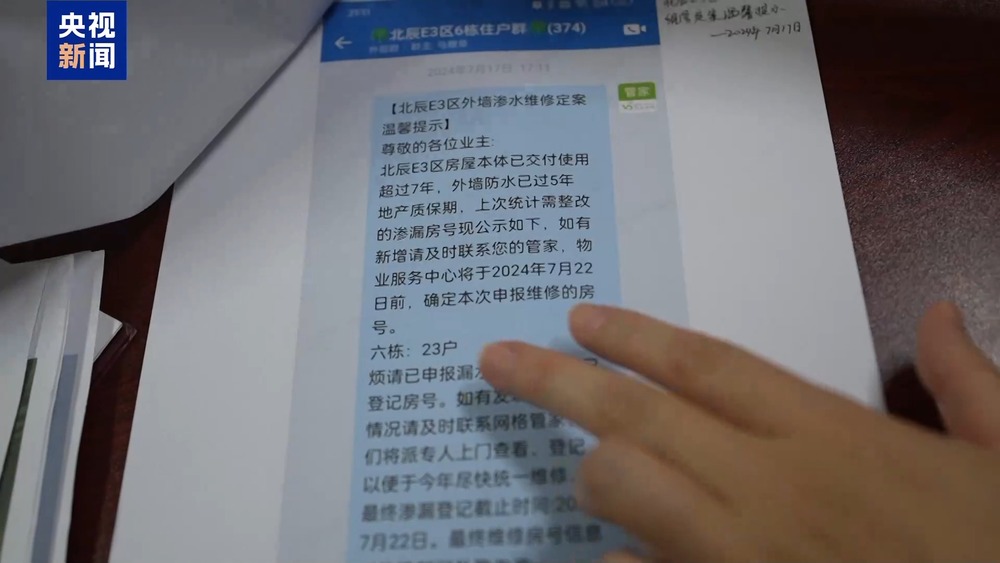 央视
新闻
北辰E3区6栋住户群 (374)
2024年7月17日 17:11
管家
【北辰E3区外墙渗水维修定案
温馨提示】
尊敬的各位业主:
北辰E3区房屋本体已交付使用
超过7年，外墙防水已过5年
地产质保期，上次统计需整改
的渗漏房号现公示如下，如有
新增请及时联系您的管家，物
业服务中心将于2024年7月22
日前，确定本次申报维修的房
号。
六栋：23户
烦请已申报漏
登记房号。如有发
情况请及时联系网格管家
们将派专人上门查看、登记
以便于今年尽快统一维修，
最终渗漏登记截止时间:20
7月22日。最终维修房号信息
温馨提示
—2024年7月17日